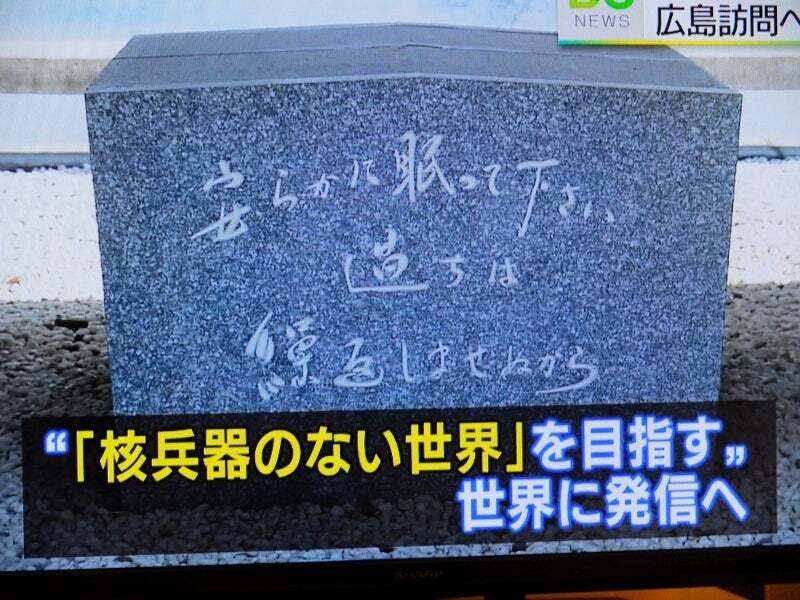 NEWS
広島訪問へ
安らかに眠って下さい
過ちは
繰返しませぬから
“「核兵器のない世界」を目指す„
世界に発信へ
SHARP